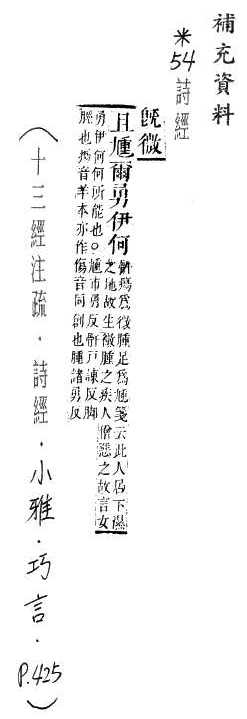 補充資料
*54 詩經
既微
且尰爾勇伊何
骭瘍為微腫足為尰箋云此人居下濕
之地故生微腫之疾人憎惡之故言女
勇伊何何所能也○尰市勇反骭戶諫反脚
脛也瘍音羊本亦作傷音同創也腫諸勇反
(十三經注疏.詩經.小雅.巧言.P.425)